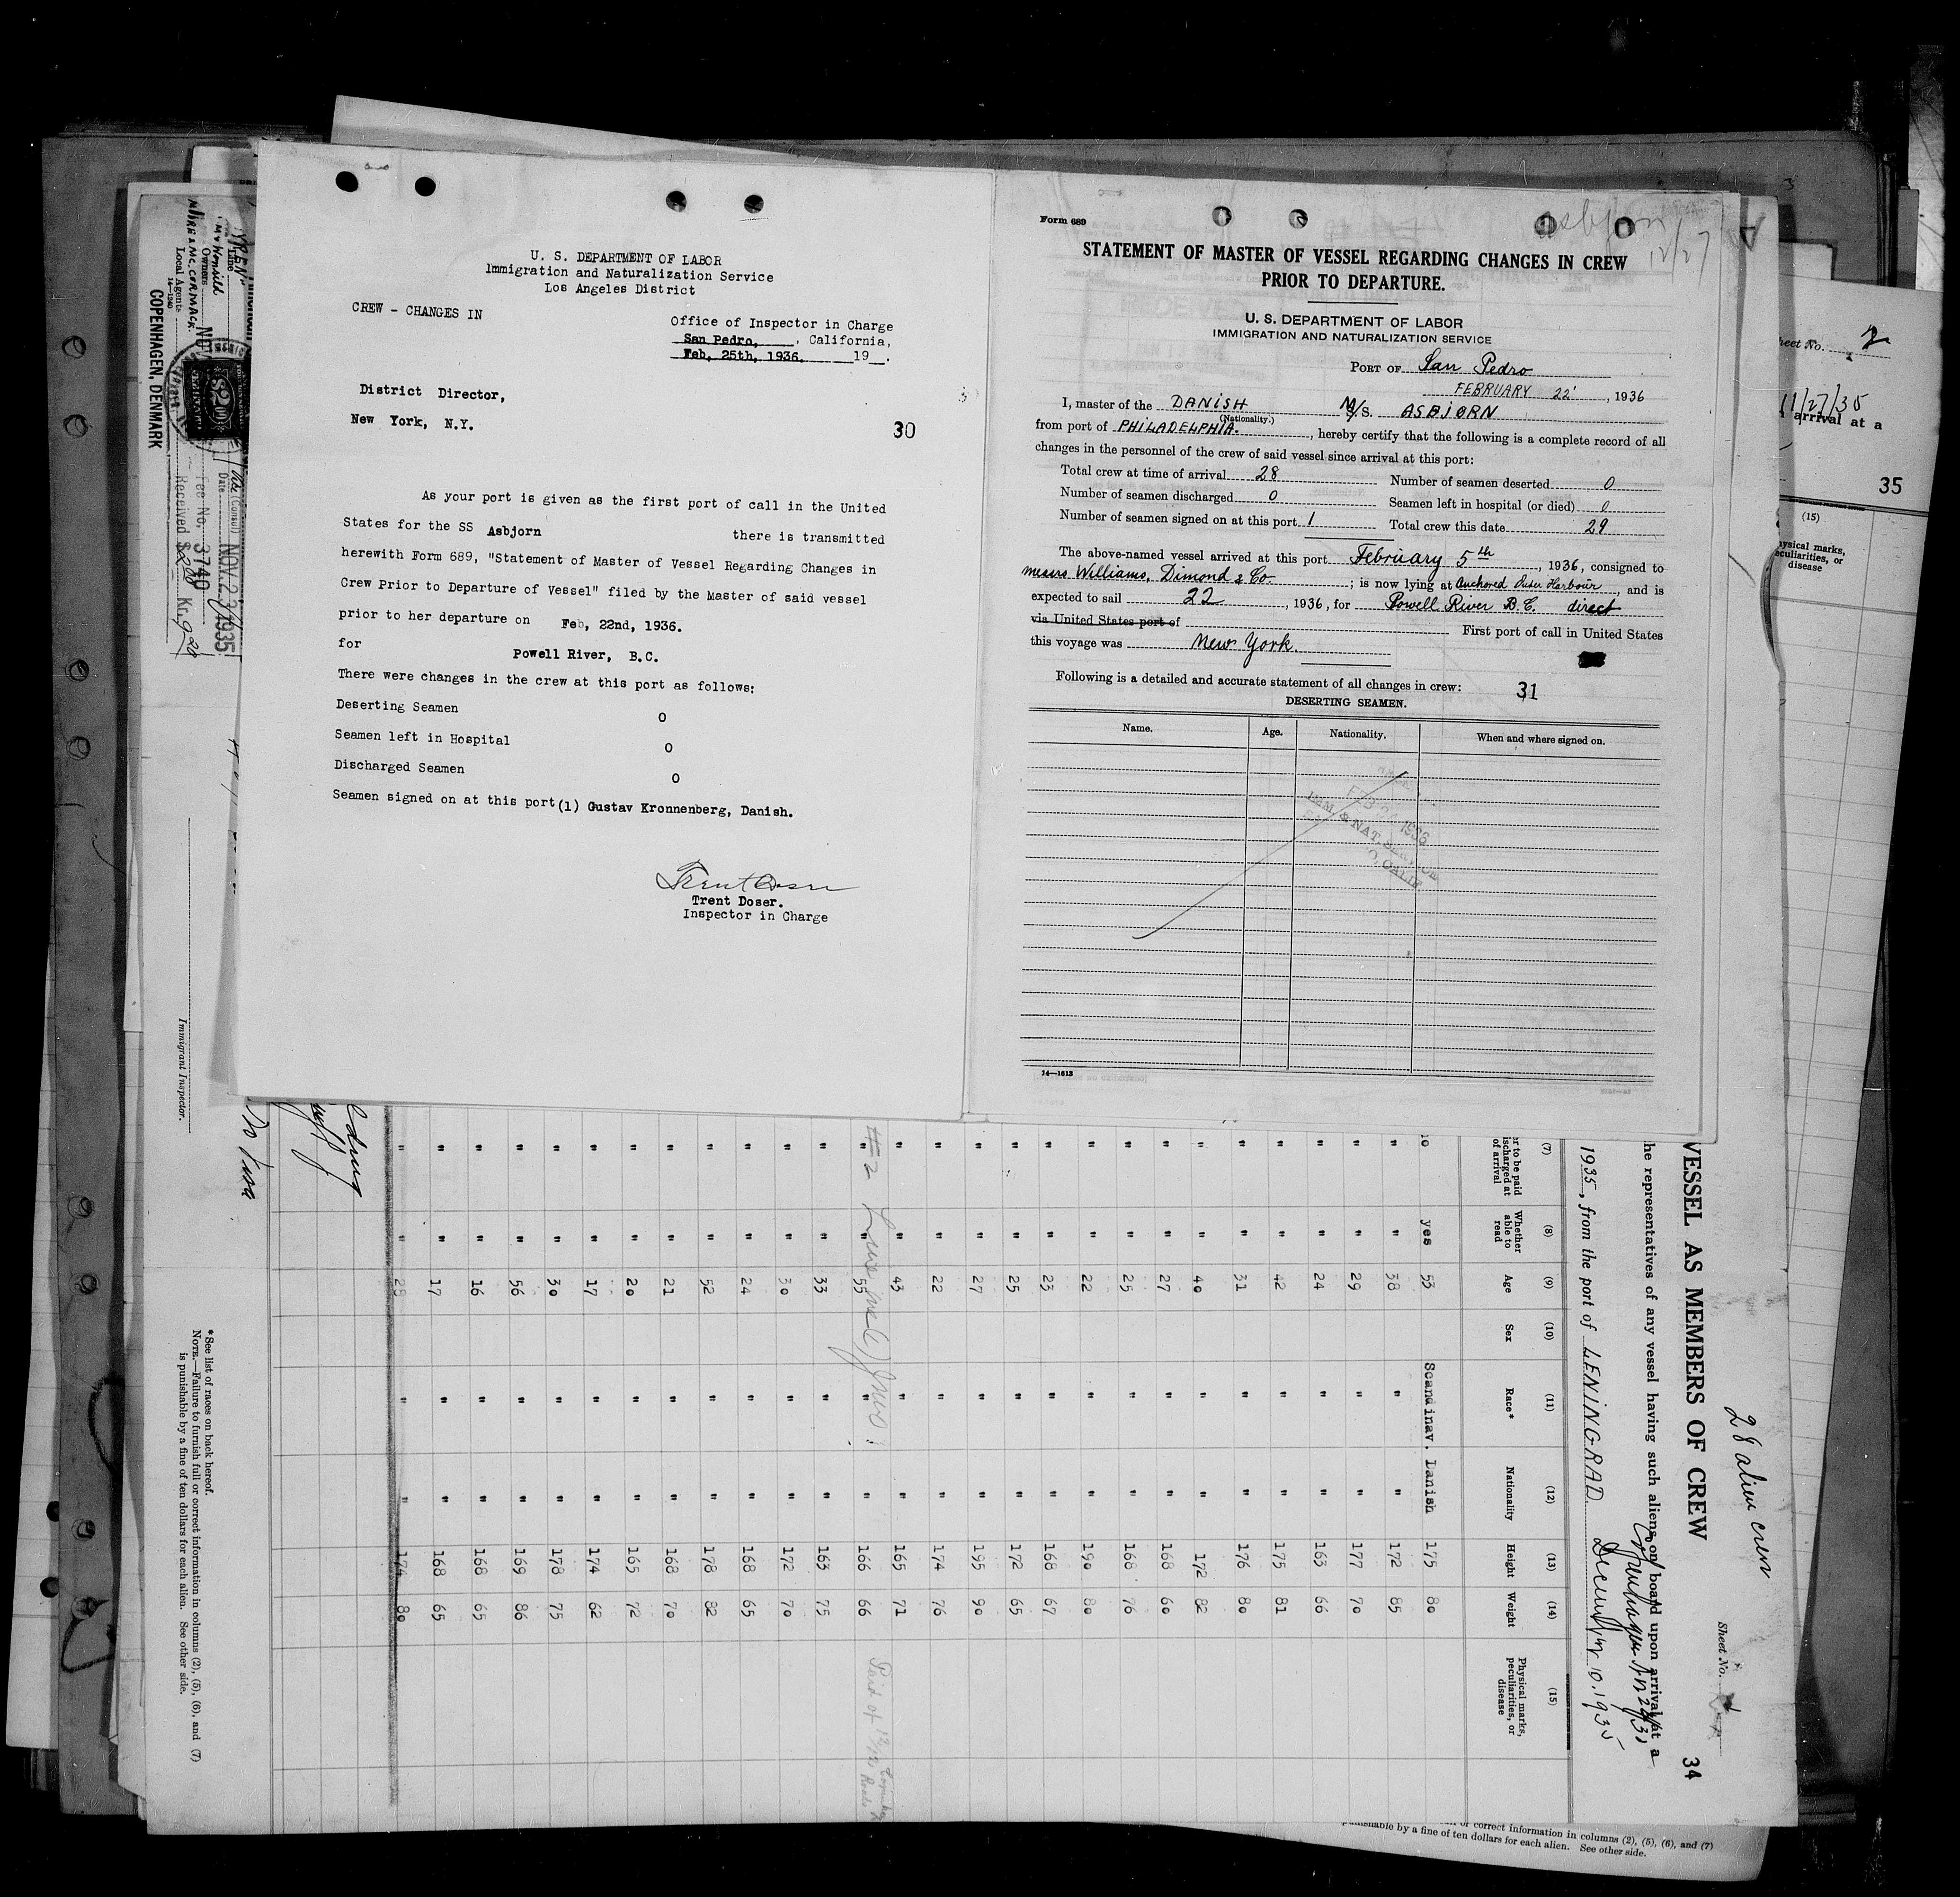 U. S. DEPARTMENT OF LABOR
Immigration and Naturalization Service
Los Angeles District
CREW - CHANGES IN
Office of Inspector in Charge
San Pedro, , California,
Feb. 25th, 1936. 19 .
District Director,
New York, N.Y.
30
As your port is given as the first port of call in the United
States for the SS Asbjorn there is transmitted
herewith Form 689, "Statement of Master of Vessel Regarding Changes in
Crew Prior to Departure of Vessel" filed by the Master of said vessel
prior to her departure on Feb, 22nd, 1936.
for
Powell River, B.C.
There were changes in the crew at this port as follows:
Deserting Seamen 0
Seamen left in Hospital 0
Discharged Seamen 0
Seamen signed on at this port(1) Gustav Kronnenberg, Danish.
Trent Doser.
Inspector in Charge
Form 689
Asbjorn
12/27
STATEMENT OF MASTER OF VESSEL REGARDING CHANGES IN CREW
PRIOR TO DEPARTURE.
U. S. DEPARTMENT OF LABOR
IMMIGRATION AND NATURALIZATION SERVICE
PORT OF San Pedro
FEBRUARY 22' , 1936
I, master of the DANISH M/S. ASBJORN
(Nationality.)
from port of PHILADELPHIA. , hereby certify that the following is a complete record of all
changes in the personnel of the crew of said vessel since arrival at this port:
Total crew at time of arrival 28 Number of seamen deserted 0
Number of seamen discharged 0 Seamen left in hospital (or died) 0
Number of seamen signed on at this port 1 Total crew this date 29
The above-named vessel arrived at this port February 5th , 1936, consigned to
messrs Williams, Dimond & Co. ; is now lying at Anchored Outer Harbour , and is
expected to sail 22 , 1936, for Powell River B.C. direct
via United States port of First port of call in United States
this voyage was New York.
Following is a detailed and accurate statement of all changes in crew: 31
DESERTING SEAMEN.
Name. Age. Nationality. When and where signed on.
IMM. & NAT. SERVICE
14—1613
COPENHAGEN, DENMARK
Local Agents
Owners
Line
Fee No. 3740
NOV. 23 1935
Immigrant Inspector.
heet No. 2
11/27/35
arrival at a
35
(15)
ysical marks,
eculiarities, or
disease
VESSEL AS MEMBERS OF CREW
28 alien crew
Sheet No. 1
34
he representatives of any vessel having such aliens on board upon arrival at a
1935, from the port of LENINGRAD December 10. 1935
(7) (8) (9) (10) (11) (12) (13) (14) (15)
er to be paid
ischarged at
of arrival
Whether
able to
read
Age
Sex
Race*
Nationality
Height
Weight
Physical marks,
peculiarities, or
disease
yes 53 Scandinav. Danish 175 80
" " 38 " " 172 85
" " 29 " " 177 70
" " 24 " " 163 66
" " 42 " " 175 81
" " 31 " " 176 80
" " 40 " " 172 82
" " 27 " " 168 60
" " 25 " " 168 76
" " 22 " " 190 80
" " 23 " " 168 67
" " 25 " " 172 65
" " 27 " " 195 90
" " 22 " " 174 76
" " 43 " " 165 71
" " 55 " " 166 66
" " 33 " " 163 75
" " 30 " " 172 70
" " 24 " " 168 65
" " 52 " " 178 82
" " 21 " " 168 70
" " 20 " " 165 72
" " 17 " " 174 62
" " 30 " " 178 75
" " 56 " " 169 86
" " 16 " " 168 65
" " 17 " " 168 65
" " 29 " " 174 80
*See list of races on back hereof.
NOTE.—Failure to furnish full or correct information in columns (2), (5), (6), and (7)
is punishable by a fine of ten dollars for each alien. See other side.
or correct information in columns (2), (5), (6), and (7)
punishable by a fine of ten dollars for each alien. See other side.